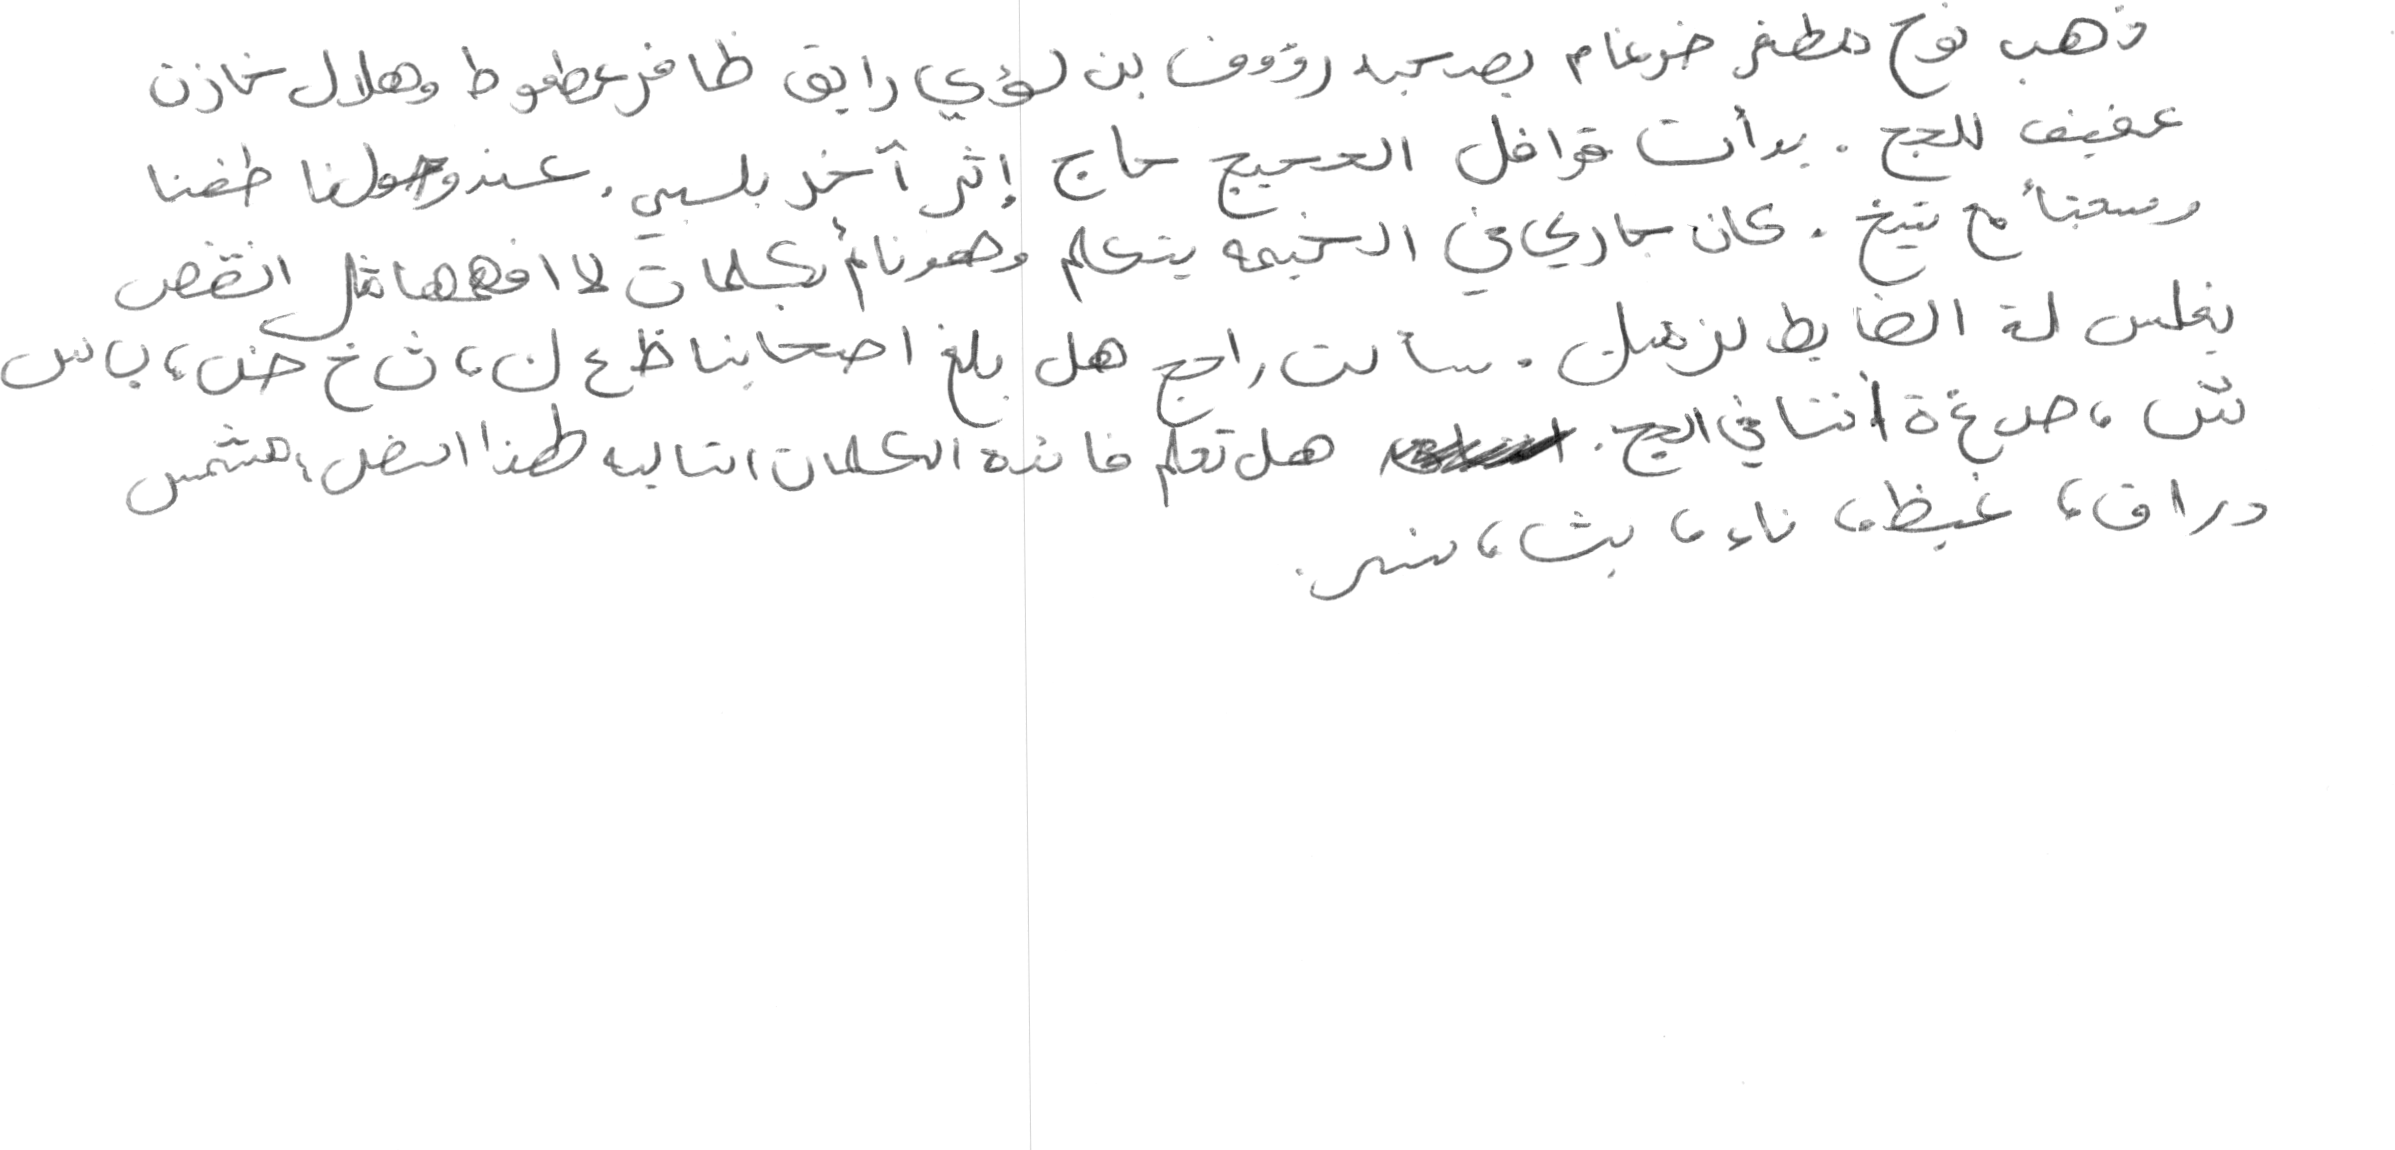 ذهب نوح مظفر ضرغام بصحبه رؤوف بن لؤي رايق ظافر عطعوط وهلال خازن
عفيف للحج . بدأت قوافل الحجيج حاج إثر آخر بلسبي . عند وصولنا طفنا
وسجتأ مع شيخ . كان جاري في الخيمه يتكلم وهو نائم بكلمات لا افهمها مثل انقض
يغلس لة الضابط لزميل . سألت راجح هل بلغ اصحابنا ظ ع ل ن ، ث خ ض ، ب ا س
ش ، ص غ ة أننا في الحج . هل تعلم فائدة الكلمات التاليه طنا النضل ، مشمس
دراق ، غيظ ، ناء ، بث ،